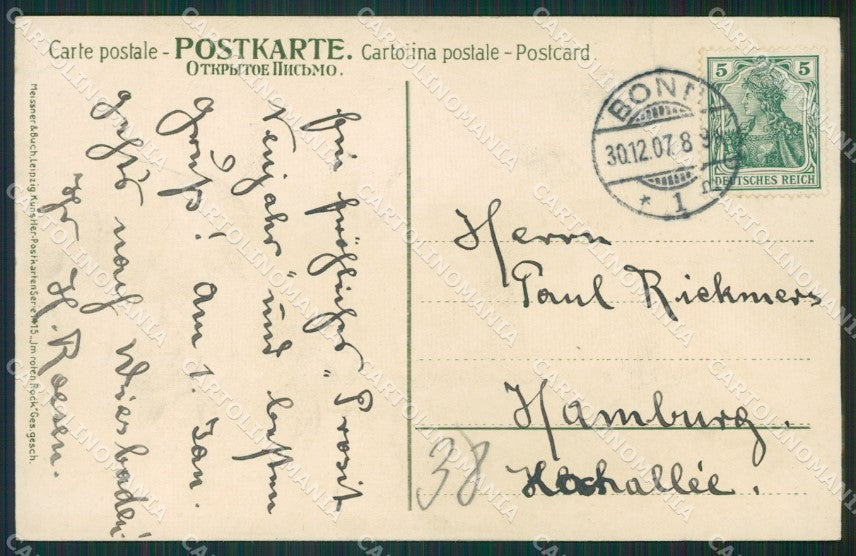 Carte postale - POSTKARTE. Cartolina postale - Postcard.
Открытое Письмо.
Meissner & Buch, Leipzig Künstler-Postkarten Serie 1415 "Im roten Rock" Ges. gesch.
Ein fröhliches "Prosit
Neujahr" und besten
Gruß! Am 1. Jan.
geht's nach Wiesbaden.
Ihr H. Roesen.
BONN
30.12.07. 8
* 1
5 5
DEUTSCHES REICH
Herrn
Paul Rickmers
Hamburg.
Hochallée.
38
CARTOLINOMANIA